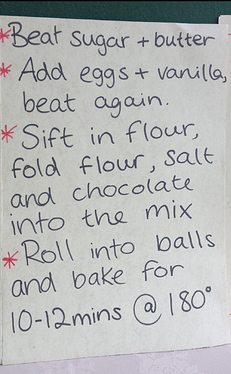 *Beat sugar + butter
* Add eggs + vanilla,
beat again.
* Sift in flour,
fold flour, salt
and chocolate
into the mix
* Roll into balls
and bake for
10-12mins @ 180°